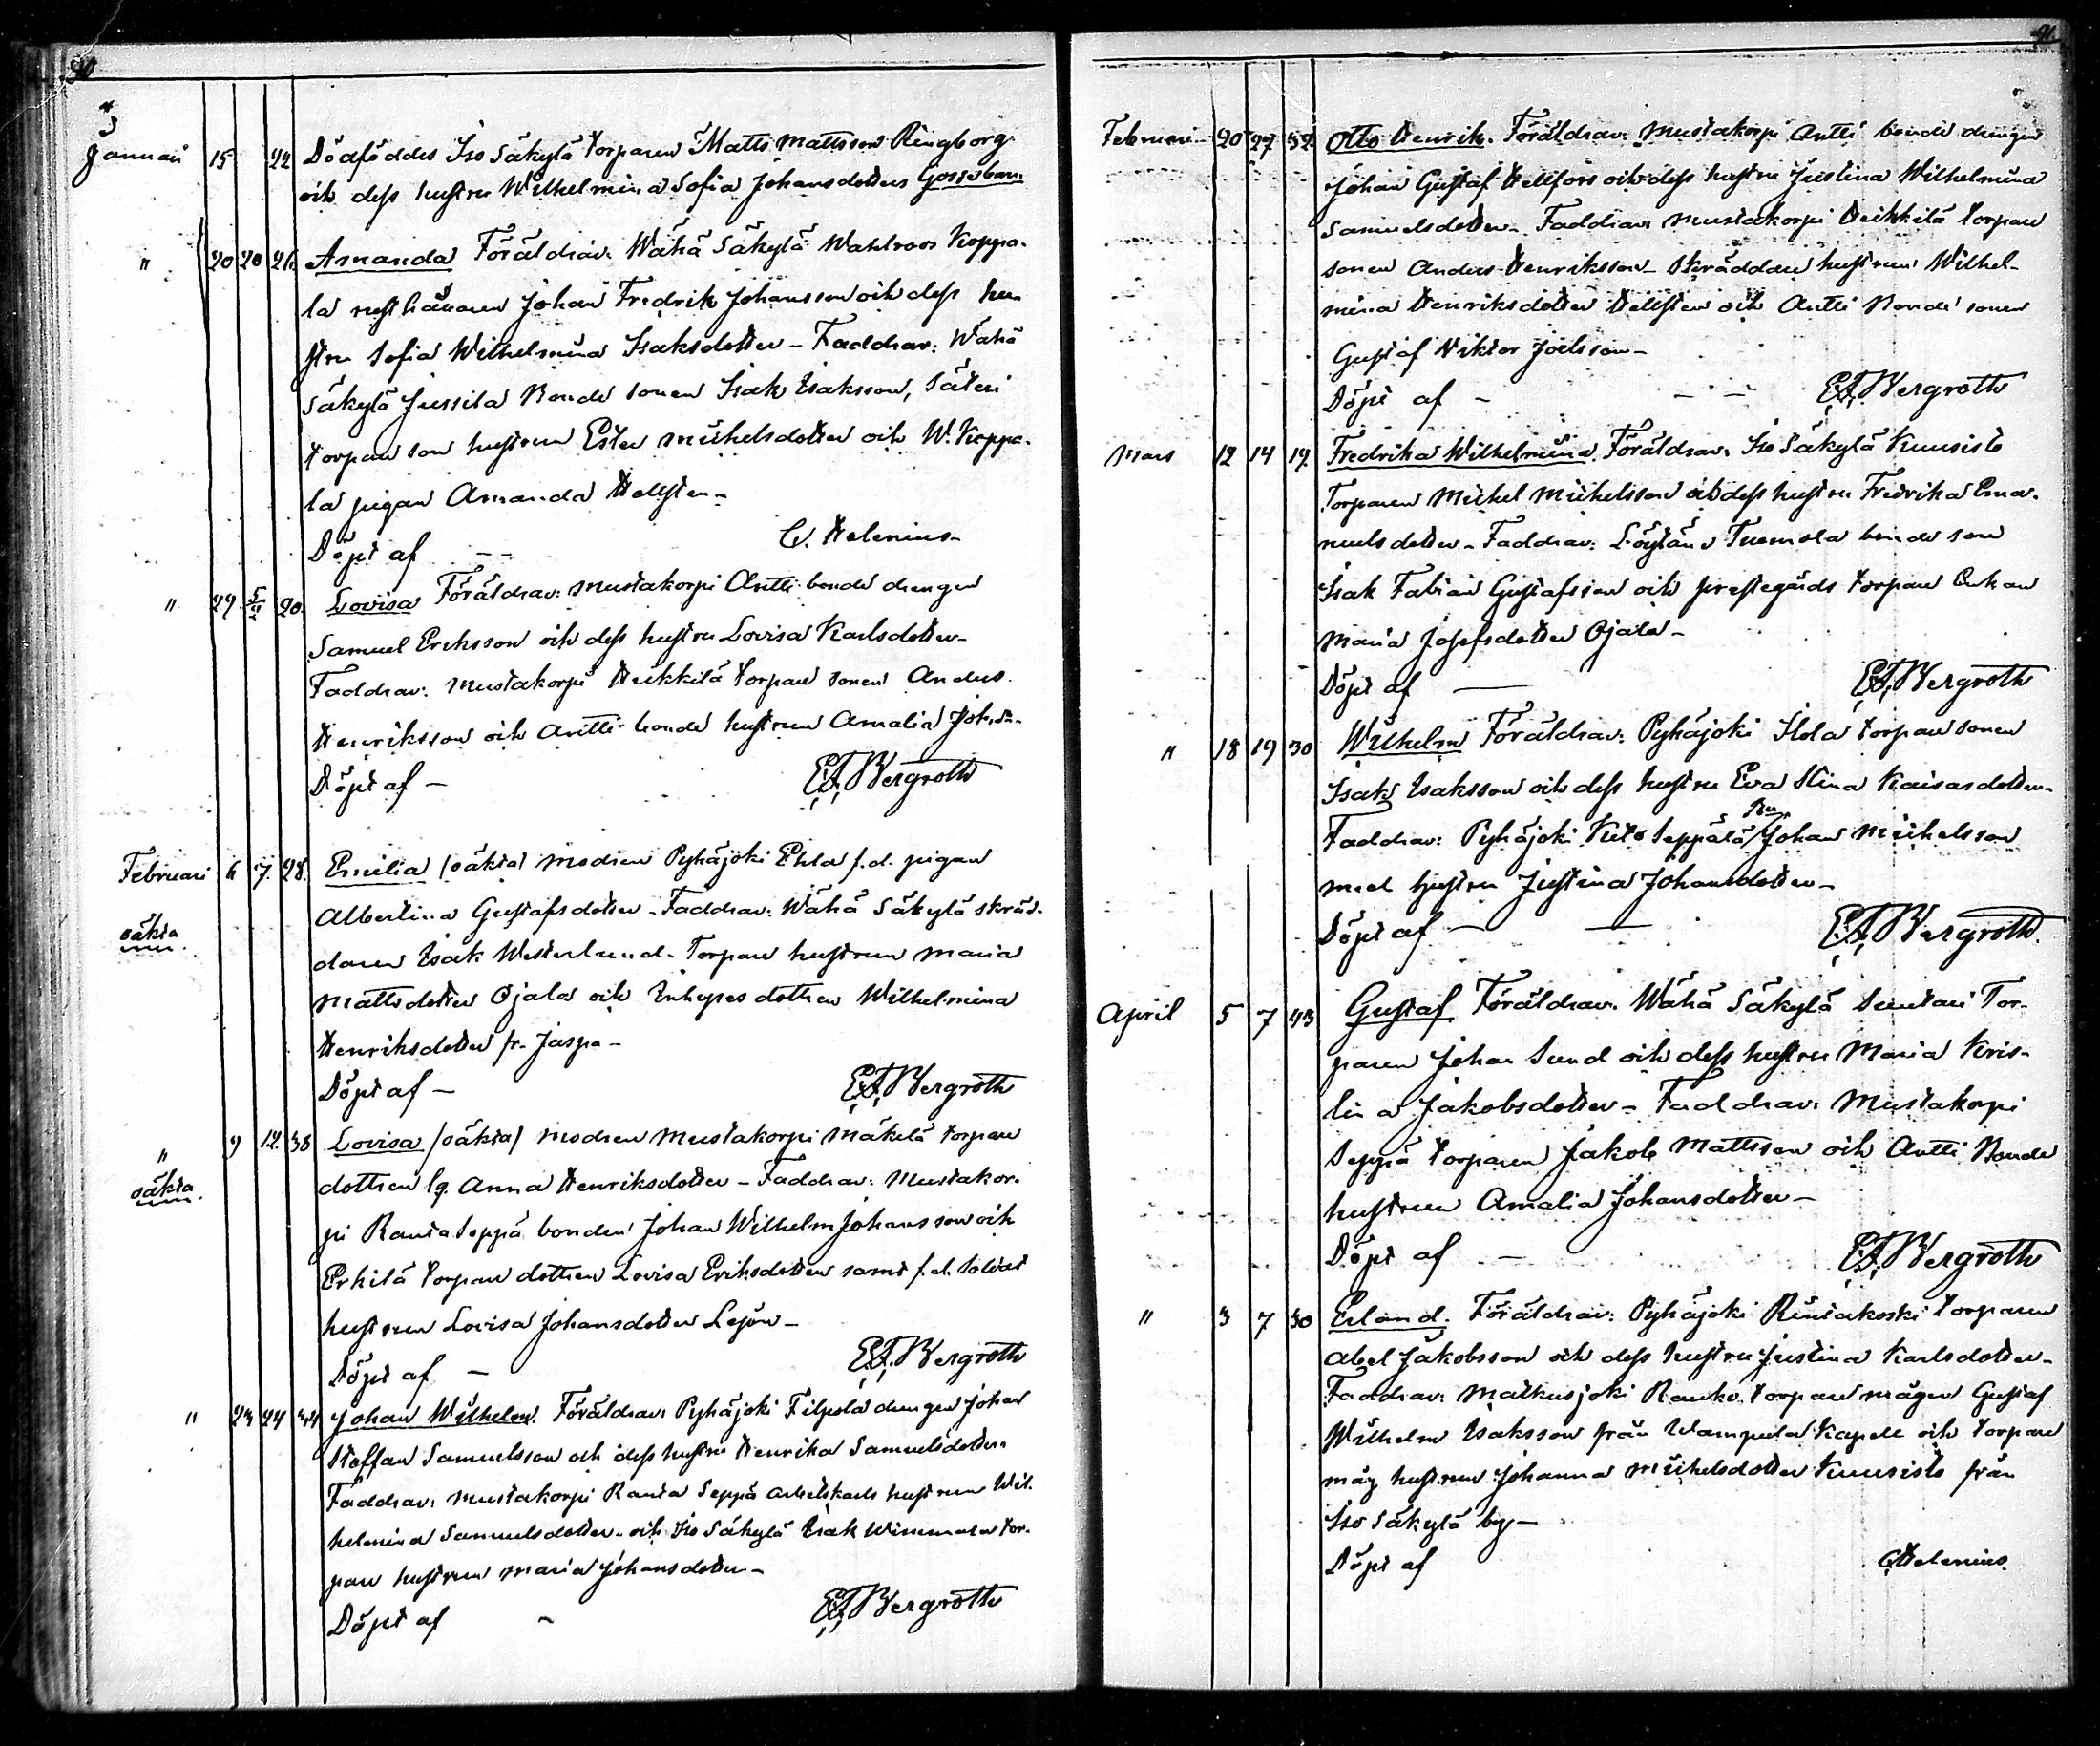 90
Januari 15 22 Dödföddes Iso Säkylä torparen Matts Mattsson Ringborgs
och dess hustru Wilhelmina Sofia Johansdotters Gossebarn
" 20 20 26 Amanda Föräldrar: Wähä Säkylä Wahlroos Koppa-
la Johan Fredrik Johansson och dess hu-
stru Sofia Wilhelmina Isaksdotter - Faddrar: Wähä
Säkylä Jussila Bonde sonen Isak Isaksson, Säteri
torpare son hustrun Ester Michelsdotter och W. Koppa-
la pigan Amanda Hellsten -
Döpt af - - C. Helenius -
" 29 5/2 20. Lovisa Föräldrar: Mustakorpi Antti bonde drengen
Samuel Eriksson och dess hustru Lovisa Karlsdotter -
Faddrar: Mustakorpi Heikkilä torpare sonen Anders
Henriksson och Antti bonde hustrun Amalia Johsdr.
Döpt af - E.F. Bergroth
Februari 6 7. 28. Emilia (oäkta) modren Pyhäjoki Ehla f.d. pigan
Albertina Gustafsdotter - Faddrar: Wähä Säkylä skräd-
oäkta
daren Isak Westerlund - Torpare hustrun Maria
Mattsdotter Ojala och Inhyses dottren Wilhelmina
Henriksdotter fr. Jaspa -
Döpt af - E.F. Bergroth
" 9 12. 38 Lovisa (oäkta) modren Mustakorpi Mäkelä torpare
oäkta.
dottren lg. Anna Henriksdotter - Faddrar: Mustakor-
pi Ranta Seppä bonden Johan Wilhelm Johansson och
Erkilä torpare dottren Lovisa Eriksdotter samt f.d. Soldat
hustrun Lovisa Johansdotter Lejon -
Döpt af - E.F. Bergroth
" 23 24 34 Johan Wilhelm. Föräldrar: Pyhäjoki Filpola drengen Johan
Staffan Samuelsson och dess hustru Henrika Samuelsdotter
Faddrar: Mustakorpi Ranta Seppä arbetskarls hustrun Wil-
helmina Samuelsdotter - och Iso Säkylä Isak Wimmala tor-
pare hustrun Maria Johansdotter -
Döpt af - E.F. Bergroth
91
Februari 20 27 32. Otto Henrik. Föräldrar: Mustakorpi Antti bonde drengen
Johan Gustaf Hellfors och dess hustru Justina Wilhelmina
Samuelsdotter - Faddrar: Mustakorpi Heikkilä torpare
sonen Anders Henriksson - Skräddare hustrun Wilhel-
mina Henriksdotter Hellsten och Antti Bonde sonen
Gustaf Wiktor Joelsson -
Döpt af - - - E.F. Bergroth
Mars 12 14 19. Fredrika Wilhelmina. Föräldrar: Iso Säkylä Kuusisto
Torparen Michel Michelsson och dess hustru Fredrika Ema-
nuelsdotter - Faddrar: Löytäne Tuomola bonde son
Isak Fabian Gustafsson och prestegårds torpare Enkan
Maria Josefsdotter Ojala -
Döpt af - E.F. Bergroth
" 18 19 30 Wilhelm Föräldrar: Pyhäjoki Ilola torpare sonen
Isak Isaksson och dess hustru Eva Stina Kaisasdotter -
Faddrar: Pyhäjoki Seppälä Johan Michelsson
med hustru Justina Johansdotter -
Döpt af - - E.F. Bergroth.
April 5 7 43 Gustaf Föräldrar: Wähä Säkylä Suntari Tor-
paren Johan Sund och dess hustru Maria Kris-
tina Jakobsdotter - Faddrar: Mustakorpi
Seppä torparen Jakob Mattsson och Antti Bonde
hustrun Amalia Johansdotter -
Döpt af - E.F. Bergroth
" 3 7 30 Erland. Föräldrar: Pyhäjoki Rintakoski torparen
Abel Jakobsson och dess hustru Justina Karlsdotter -
Faddrar: Matkusjoki torpare mågen Gustaf
Wilhelm Isaksson från Wampula Kapell och torpare
måg hustrun Johanna Michelsdotter Kuusisto från
Iso Säkylä by -
Döpt af C. Helenius